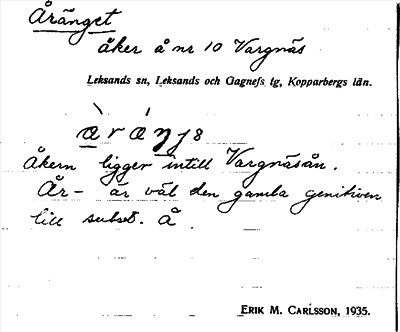 Åränget
åker å nr 10 Vargnäs
Leksands sn, Leksands och Gagnefs tg, Kopparbergs län.
Åkern ligger intill Vargnäsån.
År- är väl den gamla genitiven
till subst. Å.
ERIK M. CARLSSON, 1935.